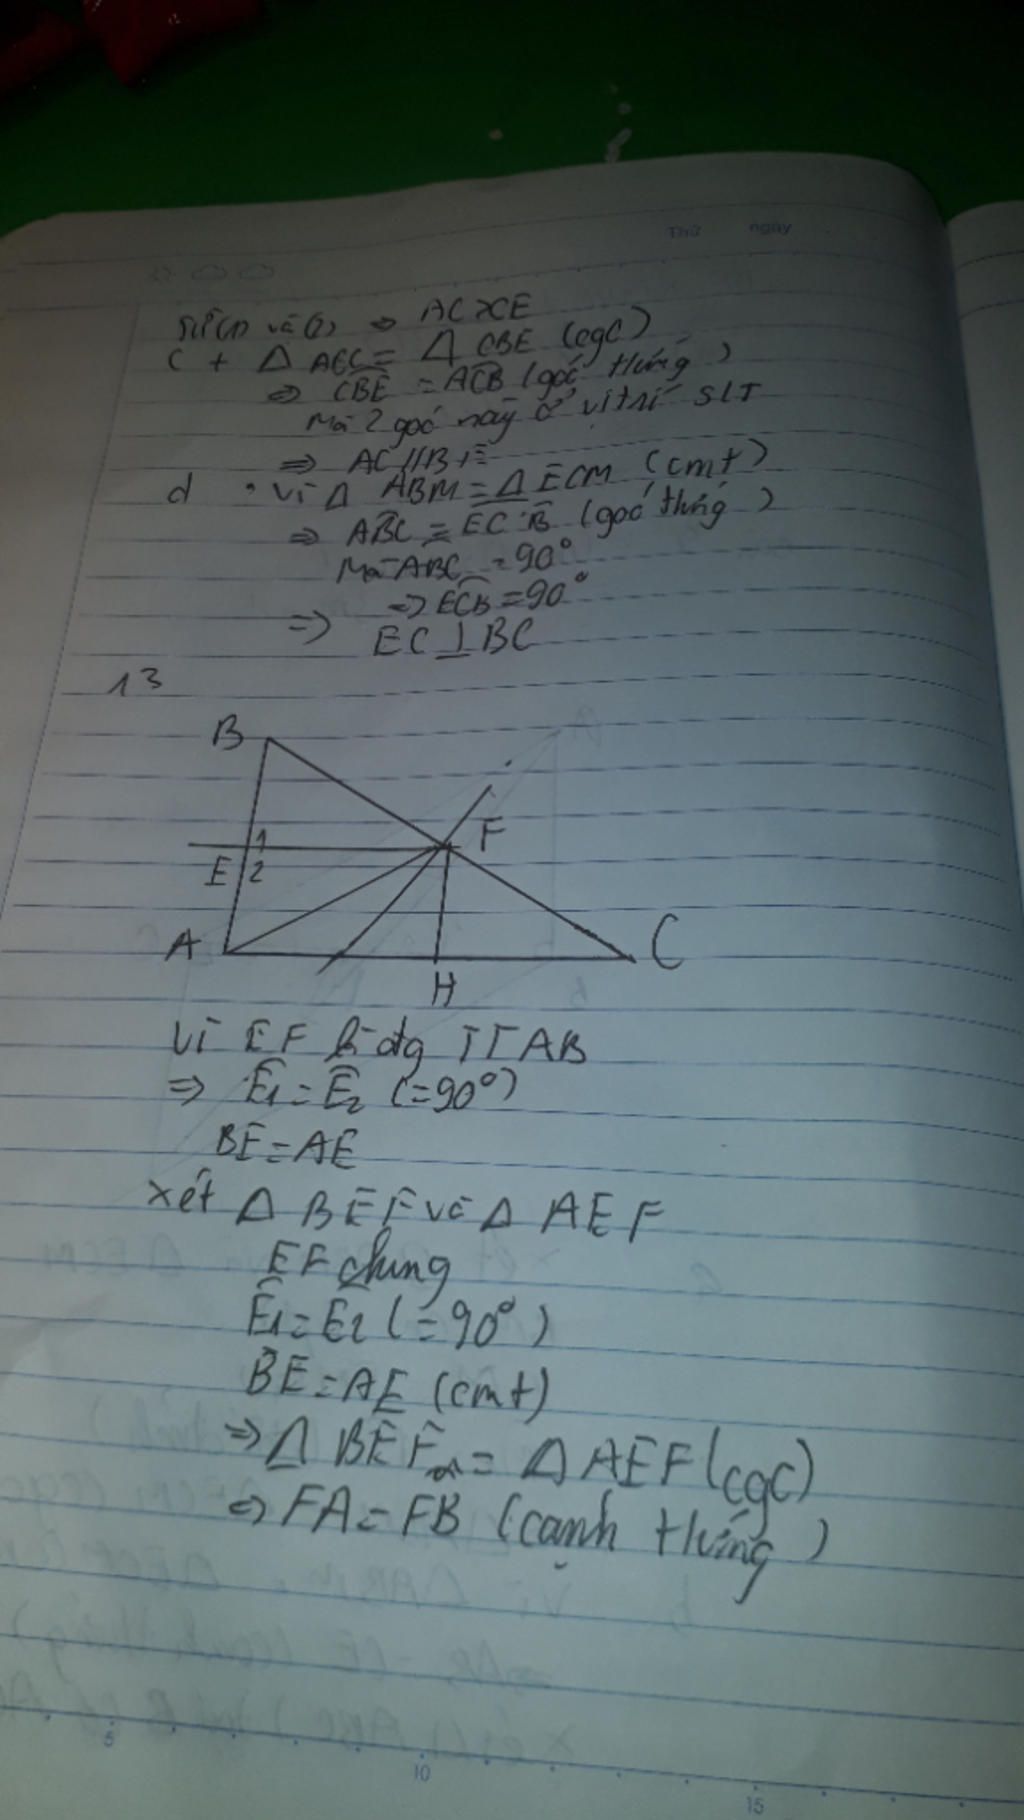 Thứ ngày
Từ (1) và (2) => AC > CE
C + Δ AEC = Δ CBE (cgc)
=> CBE = ACB (góc tứng)
Mà 2 góc naỳ ở vị trí SLT
=> AC // BE
d . Vì Δ ABM = Δ ECM (cmt)
=> ABC = ECB (góc tứng)
Mà ABC = 90°
=> ECB = 90°
=> EC ⊥ BC
13
B
F
1
E 2
A
C
H
Vì EF là đtg TT AB
=> E1 = E2 (=90°)
BE = AE
xét Δ BEF và Δ AEF
EF chung
E1 = E2 (=90°)
BE = AE (cmt)
=> Δ BEF = Δ AEF (cgc)
=> FA = FB (cạnh tứng)
5
10
15